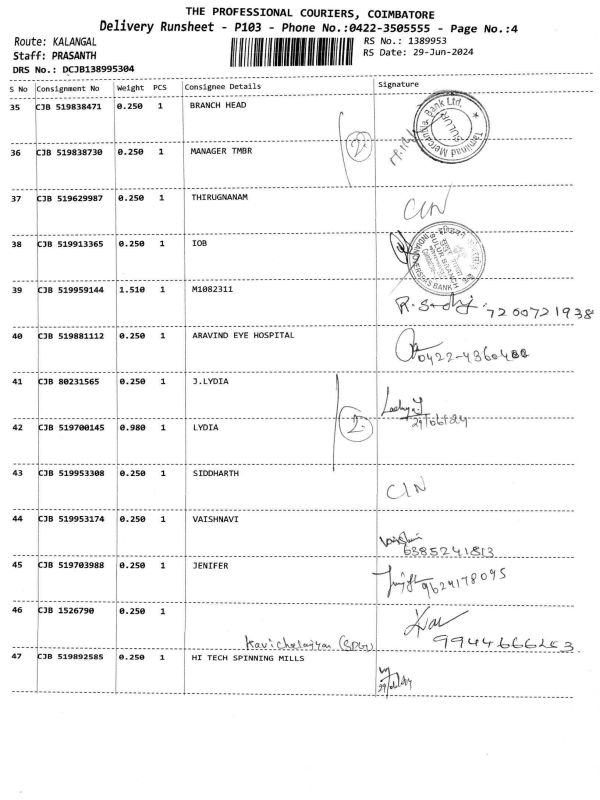 THE PROFESSIONAL COURIERS, COIMBATORE
Delivery Runsheet - P103 - Phone No.:0422-3505555 - Page No.:4
Route: KALANGAL RS No.: 1389953
Staff: PRASANTH RS Date: 29-Jun-2024
DRS No.: DCJB138995304
S No Consignment No Weight PCS Consignee Details Signature
35 CJB 519838471 0.250 1 BRANCH HEAD
Tamilnad Mercantile Bank Ltd.
SULUR
2
36 CJB 519838730 0.250 1 MANAGER TMBR
37 CJB 519629987 0.250 1 THIRUGNANAM
CIN
38 CJB 519913365 0.250 1 IOB
INDIAN OVERSEAS BANK
SULUR BRANCH
39 CJB 519959144 1.510 1 M1082311
7200721938
40 CJB 519881112 0.250 1 ARAVIND EYE HOSPITAL
0422-4360400
41 CJB 80231565 0.250 1 J.LYDIA
29/06/24
42 CJB 519700145 0.980 1 LYDIA
2
43 CJB 519953308 0.250 1 SIDDHARTH
CIN
44 CJB 519953174 0.250 1 VAISHNAVI
6385241813
45 CJB 519703988 0.250 1 JENIFER
9624178095
46 CJB 1526790 0.250 1
47 CJB 519892585 0.250 1 HI TECH SPINNING MILLS